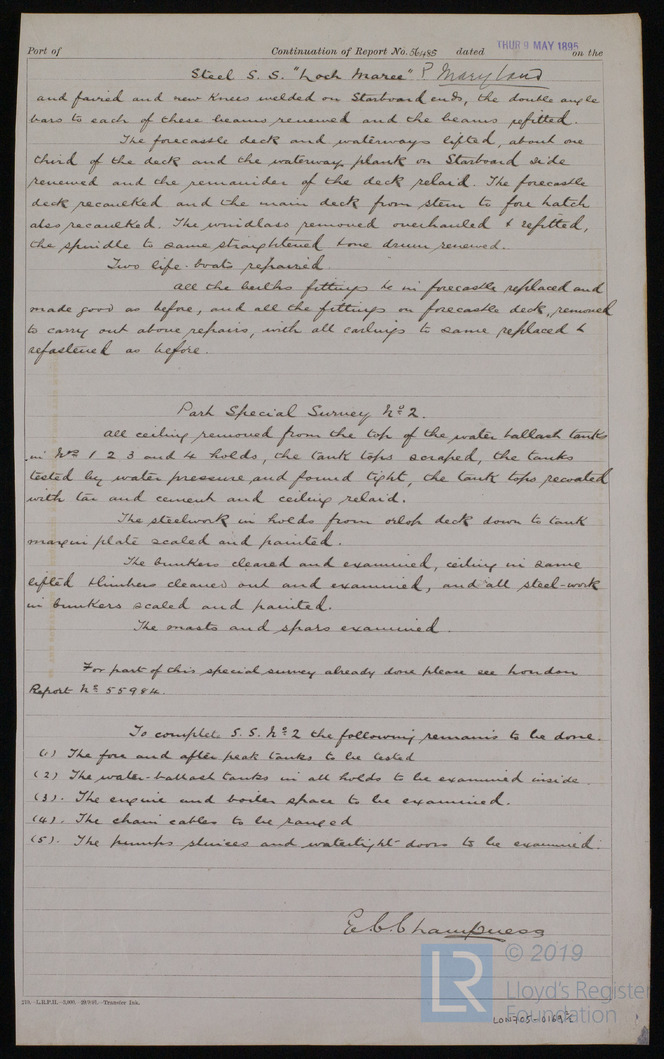 Port of Continuation of Report No. 56485 dated THUR 9 MAY 1895 on the
Steel S. S. "Loch Maree" ? Maryland
and faired and new knees welded on Starboard ends, the double angle
bars to each of these beams renewed and the beams refitted.
The forecastle deck and waterways lifted, about one
third of the deck and the waterway plank on Starboard side
renewed and the remainder of the deck relaid. The forecastle
deck recaulked and the main deck from stem to fore hatch
also recaulked. The windlass removed overhauled & refitted,
the spindle to same straightened & one drum renewed.
Two life-boats repaired.
All the berths fittings &c in forecastle replaced and
made good as before, and all the fittings on forecastle deck, removed
to carry out above repairs, with all ceilings to same replaced &
refastened as before.
Part Special Survey No 2.
All ceiling removed from the top of the water ballast tanks
in Nos 1 2 3 and 4 holds, the tank tops scraped, the tanks
tested by water pressure and found tight, the tank tops recoated
with tar and cement and ceiling relaid.
The steelwork in holds from orlop deck down to tank
margin plate scaled and painted.
The bunkers cleared and examined, ceiling in same
lifted & limbers cleaned out and examined, and all steel-work
in bunkers scaled and painted.
The masts and spars examined.
For part of this special survey already done please see London
Report No 55984.
To complete S.S. No 2 the following remains to be done.
(1) The fore and after peak tanks to be tested
(2) The water-ballast tanks in all holds to be examined inside.
(3). The engine and boiler space to be examined.
(4). The chain cables to be ranged
(5). The pumps sluices and watertight doors to be examined.
E. C. Champness
© 2019
LR
Lloyd's Register
Foundation
210. L.R.P.H.
Transfer Ink.